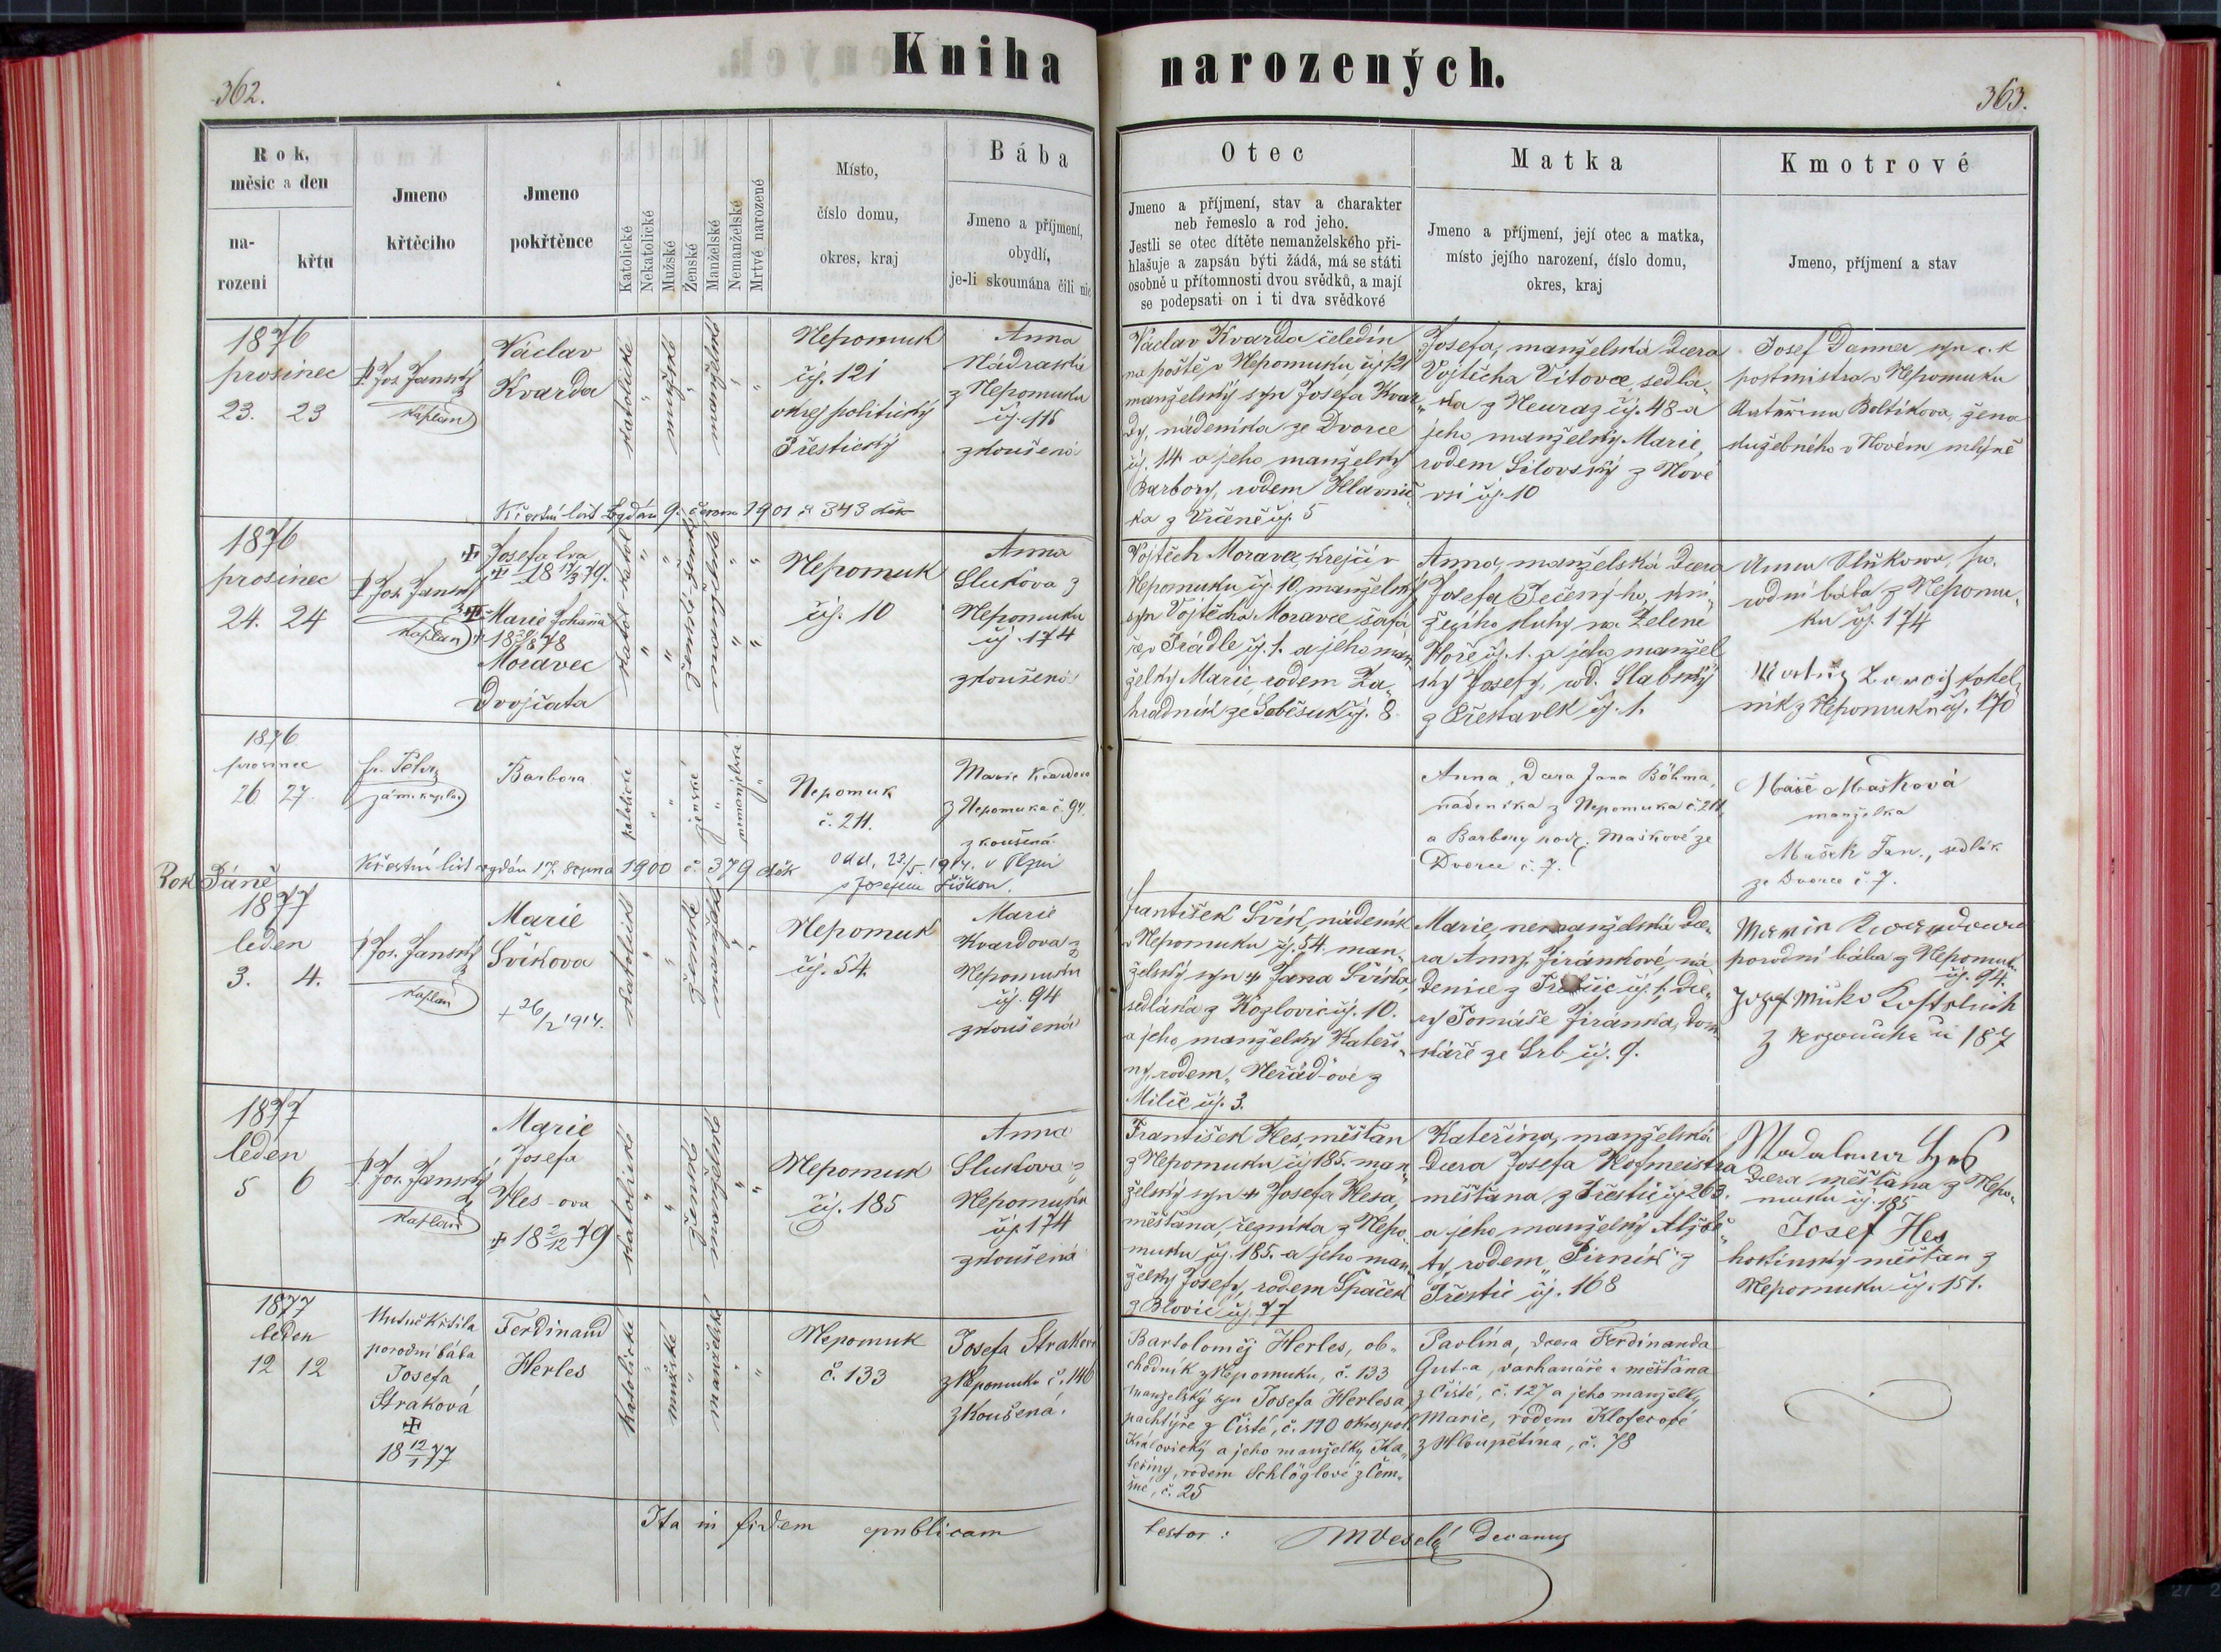 Kniha narozených.
362.
363.
Rok,
měsíc a den
na-
rozeni
křtu
Jmeno
křtěcího
Jmeno
pokřtěnce
Katolické
Nekatolické
Mužské
Ženské
Manželské
Nemanželské
Mrtvé narozené
Místo,
číslo domu,
okres, kraj
Bába
Jmeno a příjmení,
obydlí,
je-li skoumána čili nic
Otec
Jmeno a příjmení, stav a charakter
neb řemeslo a rod jeho.
Jestli se otec dítěte nemanželského při-
hlašuje a zapsán býti žádá, má se státi
osobně u přítomnosti dvou svědků, a mají
se podepsati on i ti dva svědkové
Matka
Jmeno a příjmení, její otec a matka,
místo jejího narození, číslo domu,
okres, kraj
Kmotrové
Jmeno, příjmení a stav
1876
prosinec
23. 23
P. Jos. Janský
kaplan
Václav
Kvarda
katolické
mužské
manželské
Nepomuk
čj. 121
okres politický
Přestický
Anna
z Nepomuku
zkoušená
Václav Kvarda čeledín
na poště v Nepomuku čj. 121
manželský syn Josefa Kvar-
dy, nádeníka ze Dvorce
čj. 14 a jeho manželky
Barbory, rodem Hlavnič-
ka z Vrčeně čj. 5
Josefa, manželská dcera
Vojtěcha Vítovce, sedlá-
ka z Neuraz čj. 48 a
jeho manželky Marie,
rodem Silovský z Nové
vsi čj. 10
Josef Danner syn c. k
postmistra v Nepomuku
Kateřina Boltíkova, žena
služebného v Novém mlýně
Křestní list vydán 9. června 1901 č 343 děk
1876
prosinec
24. 24
P. Jos. Janský
kaplan
Josefa Eva
✠ 18 17/3 79.
Marie Johana
Moravec
Dvojčata
katol. katol
ženské ženské
manželské
Nepomuk
čj. 10
Anna
Slukova z
Nepomuku
čj. 174
zkoušená
Vojtěch Moravec, krejčí v
Nepomuku čj. 10. manželský
syn Vojtěcha Moravce šafá-
ře v Prádle čj. 1. a jeho man-
želky Marie, rodem Za-
hradník ze Soběsuk čj. 8.
Anna, manželská dcera
Josefa Ječenýho, kní-
žecího sluhy na Zelené
Hoře čj. 1. a jeho manžel
ky Josefy, rod. Slabský
z Přestavlk čj. 1.
Anna Slukowa, po-
rodní bába z Nepomu-
ku čj. 174
kotel-
ník z Nepomuku čj. 170
1876
prosinec
26 27.
fr. Pelz
zám. kaplan
Barbora
katolické
ženské
nemanželské
Nepomuk
č. 211.
Marie Kvardova
z Nepomuka č. 94.
zkoušená
Anna, dcera Jana Böhma,
nádeníka z Nepomuka č. 211,
a Barbory roz. Maškové ze
Dvorce č. 7.
Marie Mašková
manželka
Mašek Jan., sedlák
ze Dvorce č. 7.
Křestní list vydán 17. srpna 1900 č. 379 děk
Odd. 23./5. 1914. v Plzni
s Josefem Šiškou.
Rok Páně
1877
leden
3. 4.
P. Jos. Janský
kaplan
Marie
Švíkova
+ 26/2 1914.
katolické
ženské
manželské
Nepomuk
čj. 54.
Marie
Kvardova z
Nepomuku
čj. 94
zkoušená
František Švík, nádeník
v Nepomuku čj. 54. man-
želský syn ✠ Jana Švíka,
sedláka z Kozlovic čj. 10.
a jeho manželky Kateři-
ny, rodem „Neřád-ové z
Milče čj. 3.
Marie, nemanželská dce-
ra Anny Jiránkové, ná-
denice z čj. 1, dce-
ry Tomáše Jiránka, dom-
káře ze Srb čj. 9.
Maria Kwardowa
porodní bába z Nepomuk.
čj. 94.
187
1877
leden
5 6
P. Jos. Janský
kaplan
Marie
Josefa
Hes-ova
✠ 18 2/12 79
katolické
ženské
manželské
Nepomuk
čj. 185
Anna
Slukova z
Nepomuku
čj. 174
zkoušená
František Hes, měšťan
z Nepomuku čj 185. man-
želský syn ✠ Josefa Hesa,
měšťana, řezníka z Nepo-
muku čj. 185. a jeho man-
želky Josefy, rodem Špaček
z Blovic čj. 77
Kateřina, manželská
dcera Josefa Hofmeistra
měšťana z Přeštic čj 263.
a jeho manželky Alžbě-
ty, rodem „Pirník" z
Přeštic čj. 168
Madalena Hes
dcera měšťana z Nepo-
muku čj. 185
Josef Hes
hostinský měšťan z
Nepomuku čj. 151.
1877
leden
12 12
Nutně křtila
porodní bába
Josefa
Straková
✠
18 12/1 77
Ferdinand
Herles
Katolické
mužské
manželské
Nepomuk
č. 133
Josefa Straková
z Nepomuku č. 146
zkoušená.
Bartoloměj Herles, ob-
chodník z Nepomuku, č. 133
manželský syn Josefa Herlesa,
pachtýře z Čisté, č. 110 okres pol.
Královický a jeho manželky Ka-
teřiny, rodem Schlöglové z
č. 25
Pavlína, dcera Ferdinanda
Gut-a, varhanáře a měšťana
z Čisté, č. 127 a jeho manželky
Marie, rodem Kloferové
z Hloupětína, č. 78
Ita in fidem publicam
testor: MVeselý Decanus